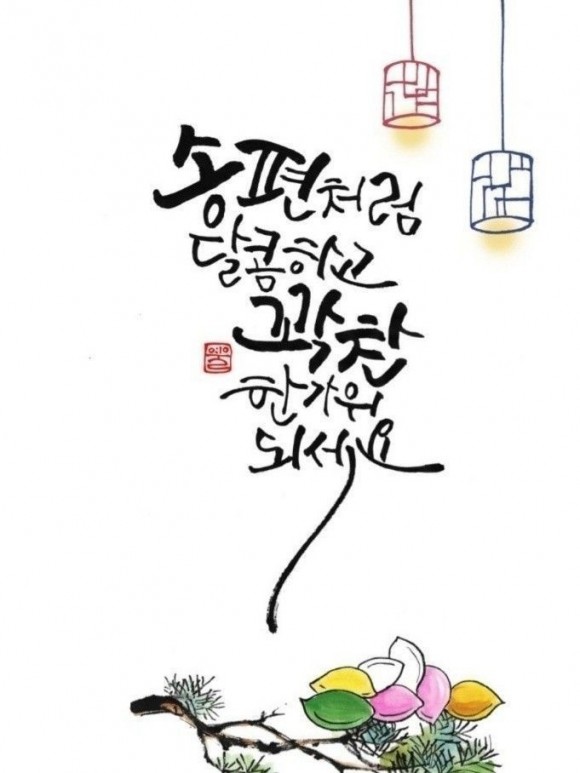 송편처럼
달콤하고
꼬각찬
한가위
되세요